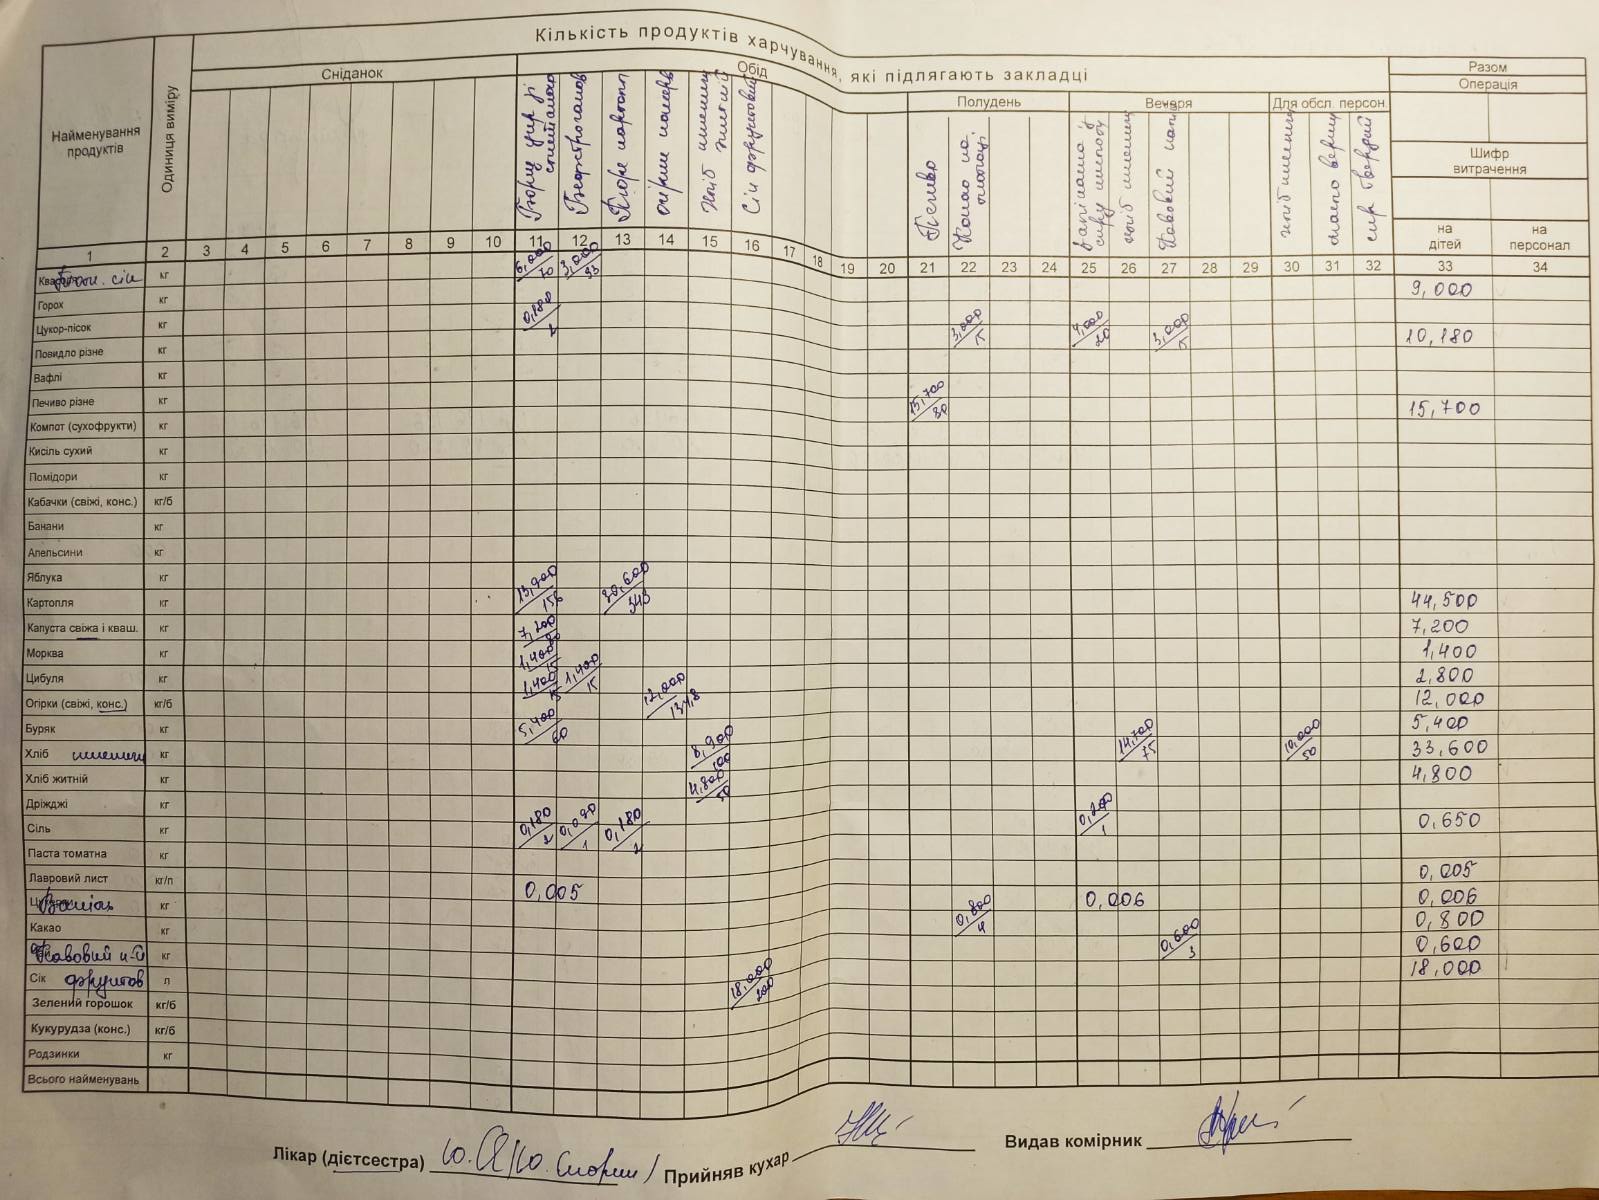 Кількість продуктів харчування, які підлягають закладці
Найменування продуктів
Одиниця виміру
Сніданок
Обід
Полудень
Вечеря
Для обсл. персон.
Разом
Операція
Шифр витрачення
на дітей
на персонал
Борщ укр зі сметаною
Бефстроганов
Пюре картопл
огірки консерв
хліб пшениц житній
Сік фруктовий
Печиво
Какао на молоці
Запіканка з сиру
хліб пшениц
Кавовий напій
хліб пшениц
масло верш
сир твердий
1 2 3 4 5 6 7 8 9 10 11 12 13 14 15 16 17 18 19 20 21 22 23 24 25 26 27 28 29 30 31 32 33 34
Том. сік кг 6,000/70 3,000/33 9,000
Горох кг
Цукор-пісок кг 0,180/2 3,000/15 4,000/20 3,000/15 10,180
Повидло різне кг
Вафлі кг
Печиво різне кг 15,700/80 15,700
Компот (сухофрукти) кг
Кисіль сухий кг
Помідори кг
Кабачки (свіжі, конс.) кг/б
Банани кг
Апельсини кг
Яблука кг
Картопля кг 13,900/156 30,600/343 44,500
Капуста свіжа і кваш. кг 7,200/80 7,200
Морква кг 1,400/15 1,400
Цибуля кг 1,400/15 1,400/15 2,800
Огірки (свіжі, конс.) кг/б 12,000/134,8 12,000
Буряк кг 5,400/60 5,400
Хліб пшениц кг 8,900/100 14,700/75 10,000/50 33,600
Хліб житній кг 4,800/50 4,800
Дріжджі кг
Сіль кг 0,180/2 0,090/1 0,180/2 0,200/1 0,650
Паста томатна кг
Лавровий лист кг/п 0,005 0,005
Ванілін кг 0,006 0,006
Какао кг 0,800/4 0,800
Кавовий н-й кг 0,600/3 0,600
Сік фруктов л 18,000/200 18,000
Зелений горошок кг/б
Кукурудза (конс.) кг/б
Родзинки кг
Всього найменувань
Лікар (дієтсестра)
Прийняв кухар
Видав комірник